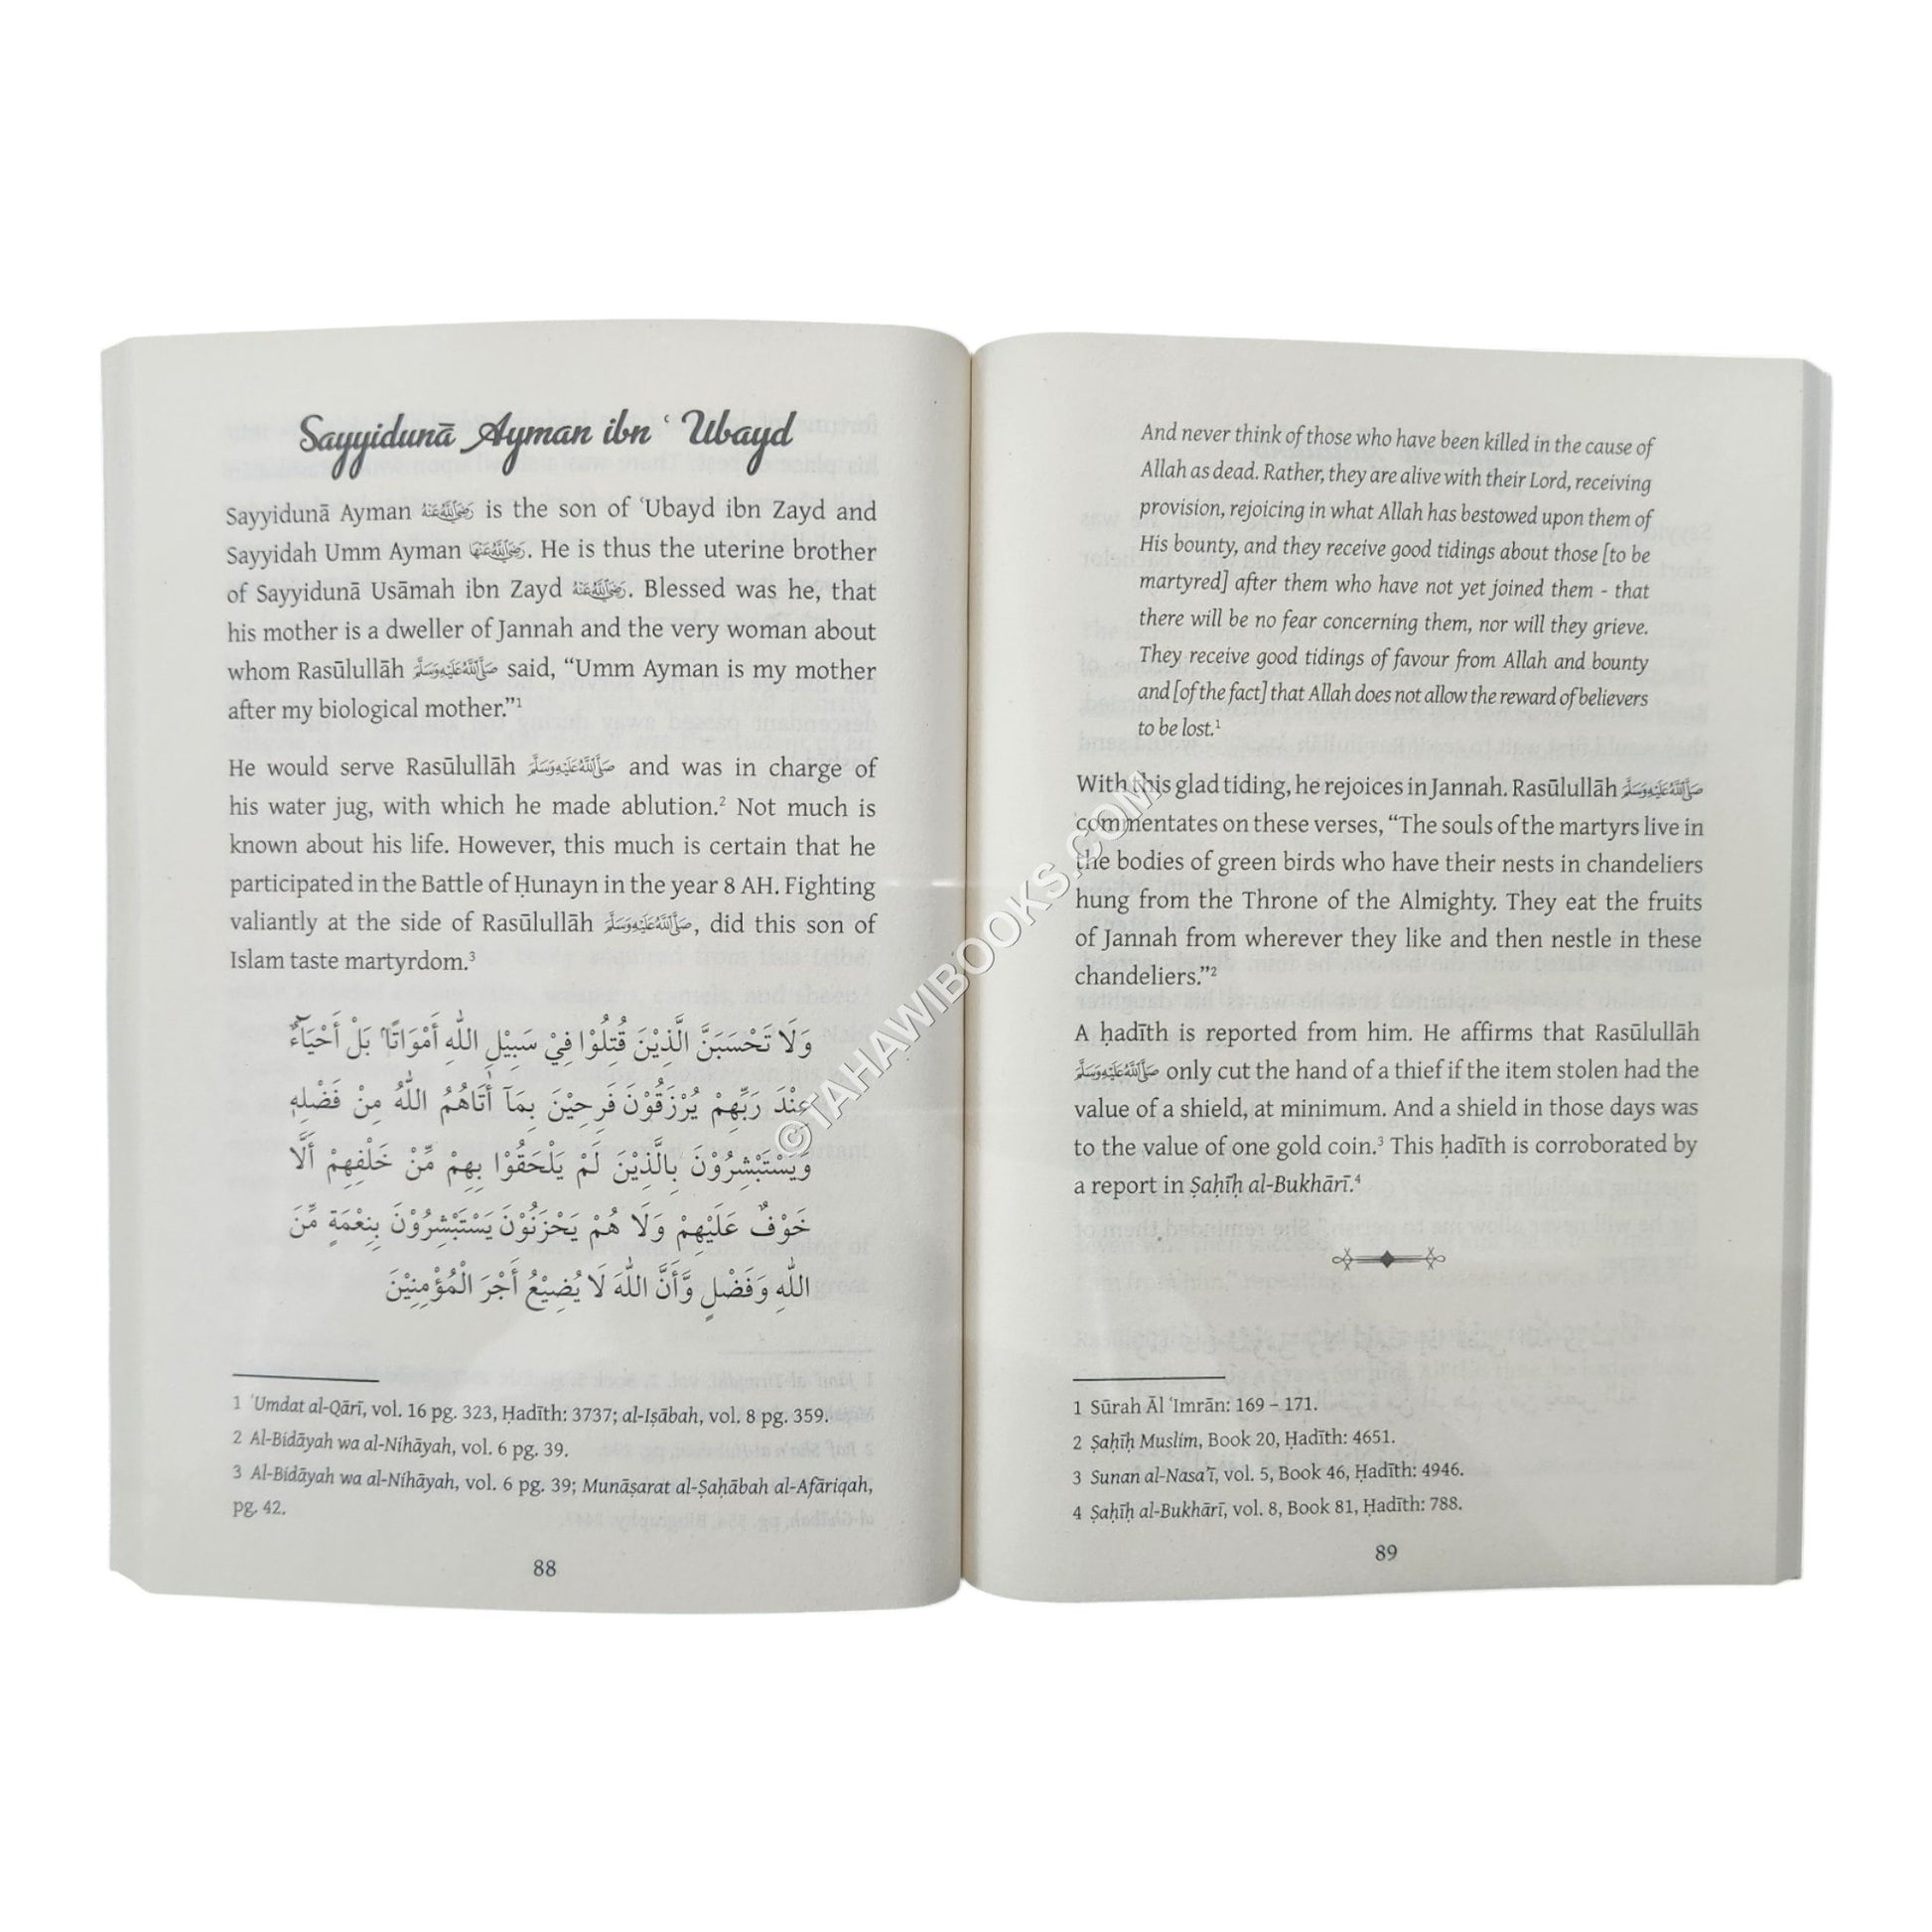 Sayyidunā Ayman ibn ʿUbayd
Sayyidunā Ayman رَضِيَ اللَّهُ عَنْهُ is the son of ʿUbayd ibn Zayd and
Sayyidah Umm Ayman رَضِيَ اللَّهُ عَنْهَا. He is thus the uterine brother
of Sayyidunā Usāmah ibn Zayd رَضِيَ اللَّهُ عَنْهُ. Blessed was he, that
his mother is a dweller of Jannah and the very woman about
whom Rasūlullāh صَلَّى اللَّهُ عَلَيْهِ وَسَلَّمَ said, “Umm Ayman is my mother
after my biological mother.”¹
He would serve Rasūlullāh صَلَّى اللَّهُ عَلَيْهِ وَسَلَّمَ and was in charge of
his water jug, with which he made ablution.² Not much is
known about his life. However, this much is certain that he
participated in the Battle of Ḥunayn in the year 8 AH. Fighting
valiantly at the side of Rasūlullāh صَلَّى اللَّهُ عَلَيْهِ وَسَلَّمَ, did this son of
Islam taste martyrdom.³
وَلَا تَحْسَبَنَّ الَّذِيْنَ قُتِلُوْا فِيْ سَبِيْلِ اللّٰهِ أَمْوَاتًا ۚ بَلْ أَحْيَآءٌ
عِنْدَ رَبِّهِمْ يُرْزَقُوْنَ فَرِحِيْنَ بِمَآ أٰتَاهُمُ اللّٰهُ مِنْ فَضْلِهٖ
وَيَسْتَبْشِرُوْنَ بِالَّذِيْنَ لَمْ يَلْحَقُوْا بِهِمْ مِّنْ خَلْفِهِمْ أَلَّا
خَوْفٌ عَلَيْهِمْ وَلَا هُمْ يَحْزَنُوْنَ يَسْتَبْشِرُوْنَ بِنِعْمَةٍ مِّنَ
اللّٰهِ وَفَضْلٍ وَّأَنَّ اللّٰهَ لَا يُضِيْعُ أَجْرَ الْمُؤْمِنِيْنَ
1 ʿUmdat al-Qārī, vol. 16 pg. 323, Ḥadīth: 3737; al-Iṣābah, vol. 8 pg. 359.
2 Al-Bidāyah wa al-Nihāyah, vol. 6 pg. 39.
3 Al-Bidāyah wa al-Nihāyah, vol. 6 pg. 39; Munāṣarat al-Ṣaḥābah al-Afāriqah,
pg. 42.
88
And never think of those who have been killed in the cause of
Allah as dead. Rather, they are alive with their Lord, receiving
provision, rejoicing in what Allah has bestowed upon them of
His bounty, and they receive good tidings about those [to be
martyred] after them who have not yet joined them - that
there will be no fear concerning them, nor will they grieve.
They receive good tidings of favour from Allah and bounty
and [of the fact] that Allah does not allow the reward of believers
to be lost.¹
With this glad tiding, he rejoices in Jannah. Rasūlullāh صَلَّى اللَّهُ عَلَيْهِ وَسَلَّمَ
commentates on these verses, “The souls of the martyrs live in
the bodies of green birds who have their nests in chandeliers
hung from the Throne of the Almighty. They eat the fruits
of Jannah from wherever they like and then nestle in these
chandeliers.”²
A ḥadīth is reported from him. He affirms that Rasūlullāh
صَلَّى اللَّهُ عَلَيْهِ وَسَلَّمَ only cut the hand of a thief if the item stolen had the
value of a shield, at minimum. And a shield in those days was
to the value of one gold coin.³ This ḥadīth is corroborated by
a report in Ṣaḥīḥ al-Bukhārī.⁴
1 Sūrah Āl ʿImrān: 169 – 171.
2 Ṣaḥīḥ Muslim, Book 20, Ḥadīth: 4651.
3 Sunan al-Nasa’ī, vol. 5, Book 46, Ḥadīth: 4946.
4 Ṣaḥīḥ al-Bukhārī, vol. 8, Book 81, Ḥadīth: 788.
89
©TAHAWIBOOKS.COM